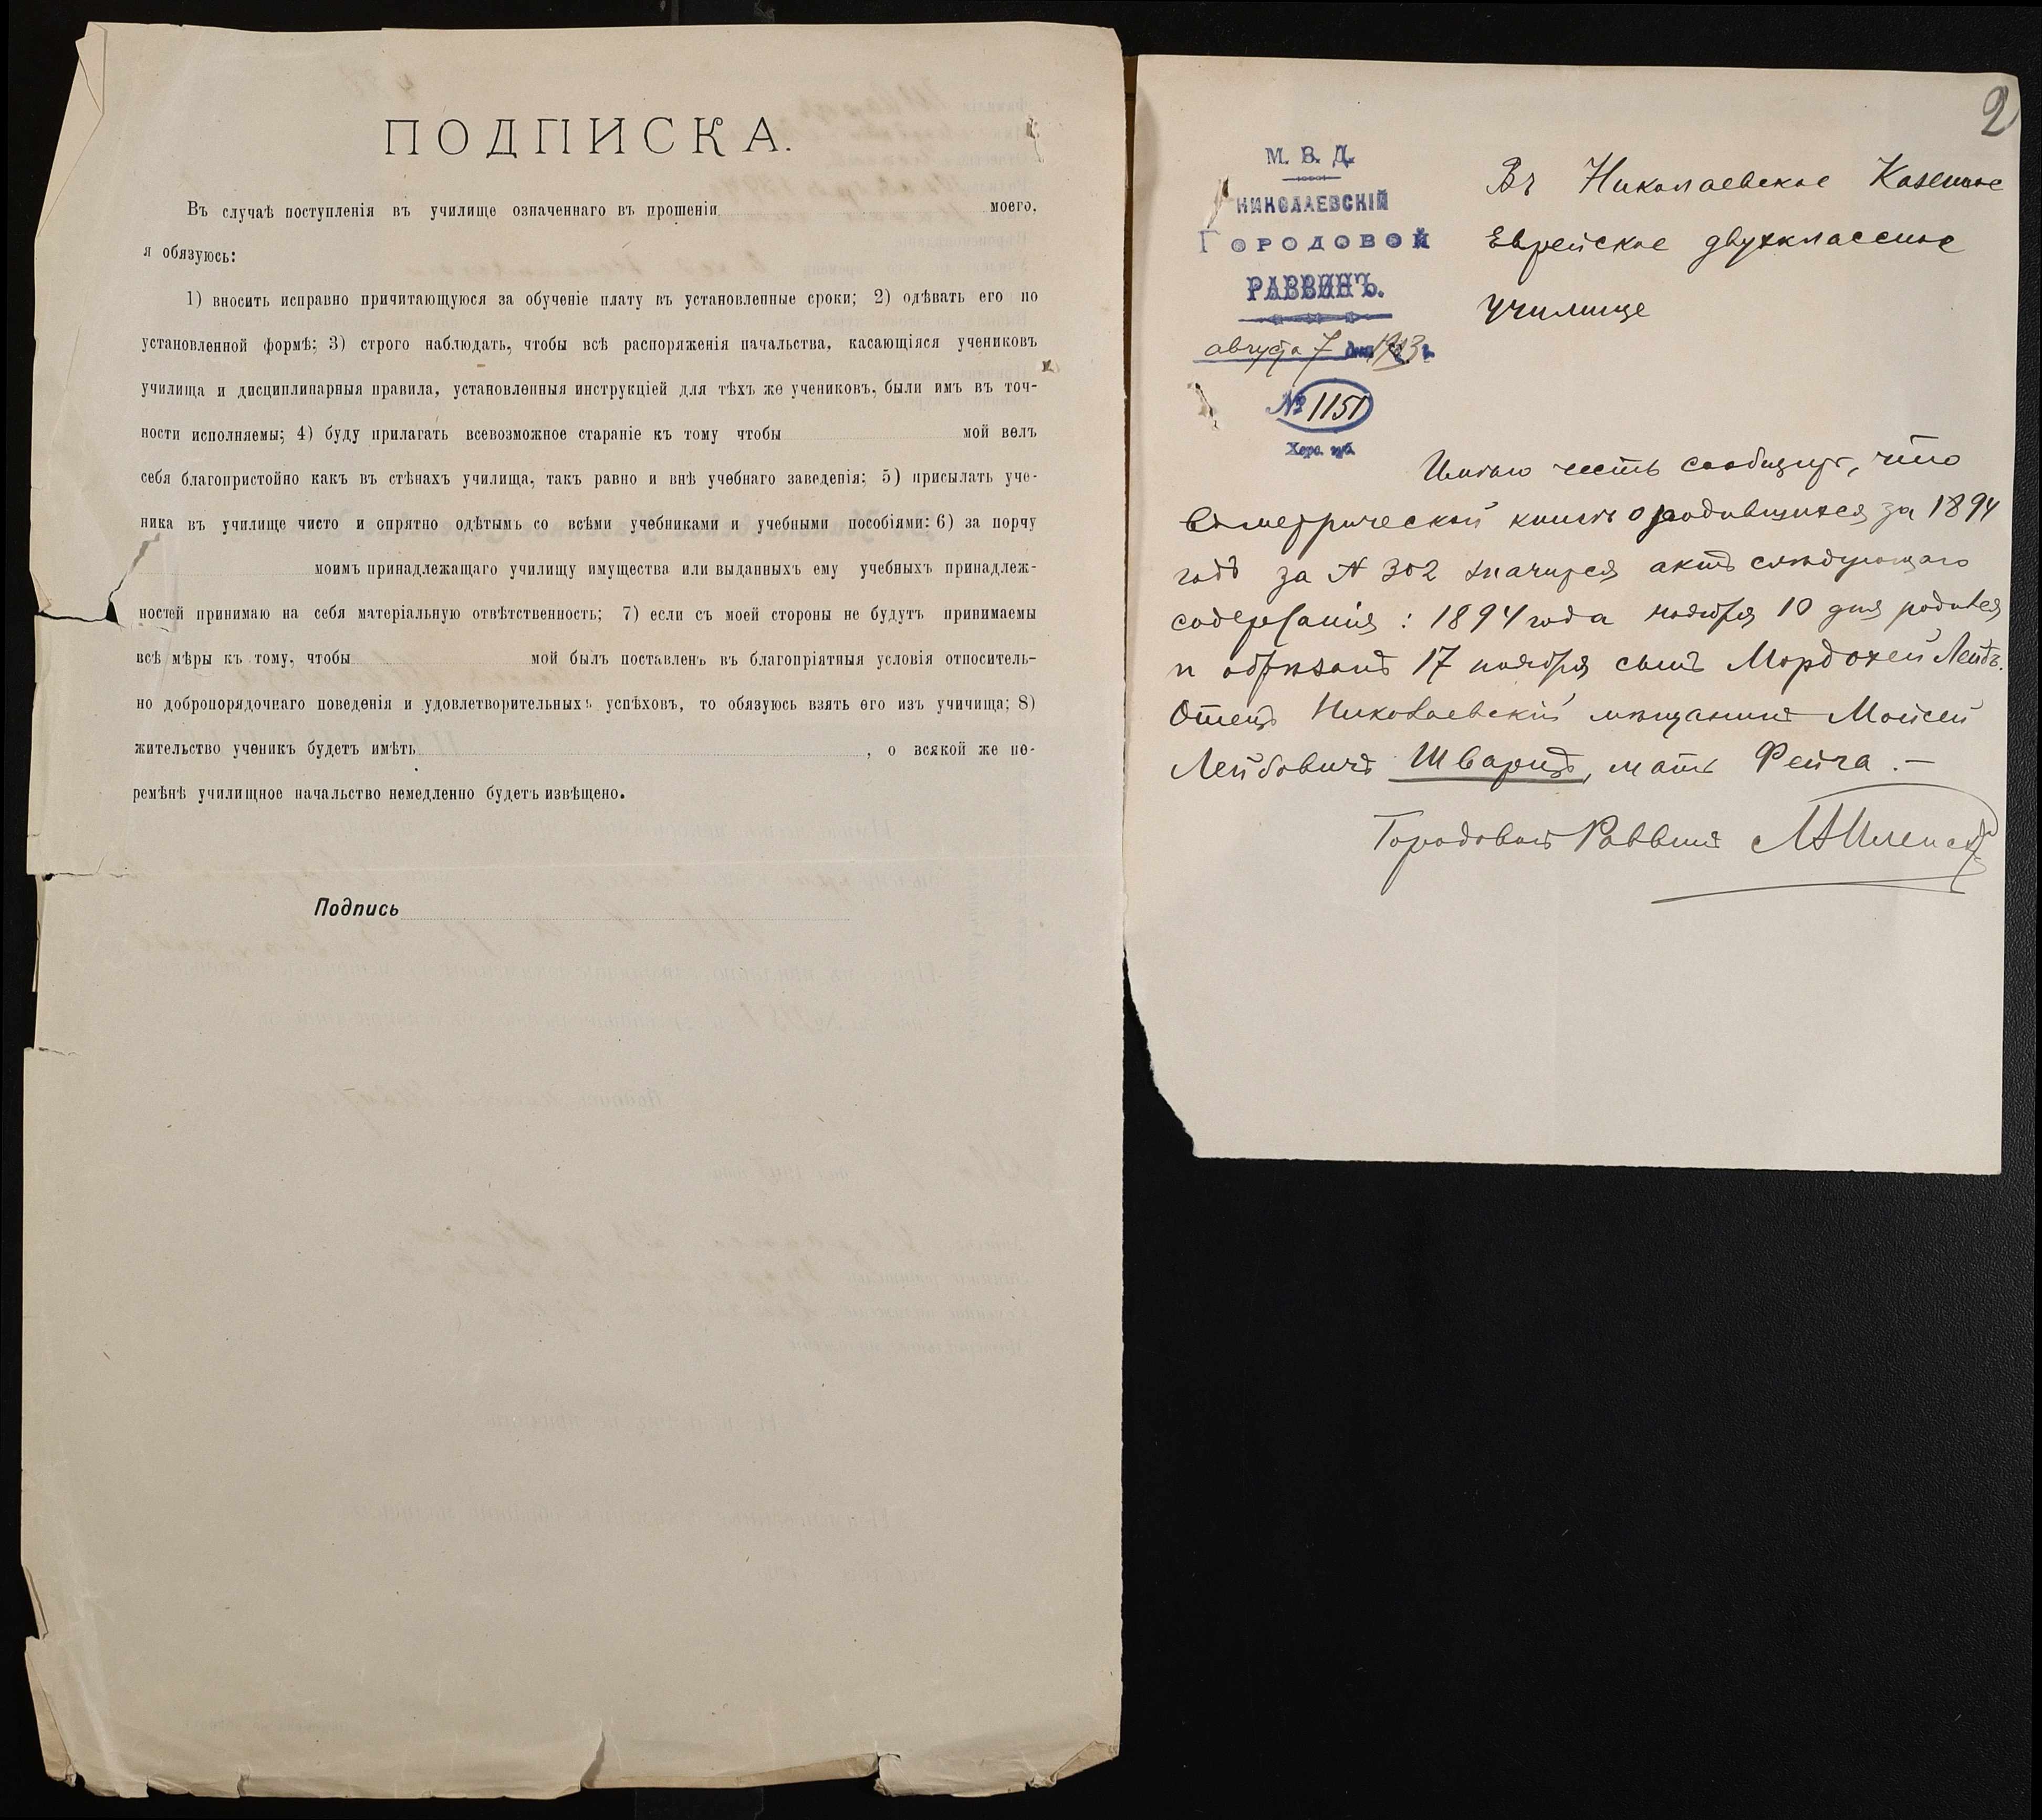 ПОДПИСКА.
Въ случаѣ поступленія въ училище означеннаго въ прошеніи моего,
я обязуюсь:
1) вносить исправно причитающуюся за обученіе плату въ установленные сроки; 2) одѣвать его по
установленной формѣ; 3) строго наблюдать, чтобы всѣ распоряженія начальства, касающіяся учениковъ
училища и дисциплинарныя правила, установленныя инструкціей для тѣхъ же учениковъ, были имъ въ точ-
ности исполняемы; 4) буду прилагать всевозможное стараніе къ тому чтобы мой велъ
себя благопристойно какъ въ стѣнахъ училища, такъ равно и внѣ учебнаго заведенія; 5) присылать уче-
ника въ училище чисто и опрятно одѣтымъ со всѣми учебниками и учебными пособіями: 6) за порчу
моимъ принадлежащаго училищу имущества или выданныхъ ему учебныхъ принадлеж-
ностей принимаю на себя матеріальную отвѣтственность; 7) если съ моей стороны не будутъ принимаемы
всѣ мѣры къ тому, чтобы мой былъ поставленъ въ благопріятныя условія относитель-
но добропорядочнаго поведенія и удовлетворительныхъ успѣховъ, то обязуюсь взять его изъ учичища; 8)
жительство ученикъ будетъ имѣть , о всякой же пе-
ремѣнѣ училищное начальство немедленно будетъ извѣщено.
Подпись
2
М. В. Д.
НИКОЛАЕВСКІЙ
ГОРОДОВОЙ
РАВВИНЪ.
августа 7 дня 1903 г.
№ 1151
Херс. губ.
Въ Николаевское Казенное
Еврейское двухклассное
училище
Имѣю честь сообщить, что
въ метрической книгѣ о родившихся за 1894
годъ за № 302 значится актъ слѣдующаго
содержанія: 1894 года ноября 10 дня родился
и обрѣзанъ 17 ноября сынъ Мордохей Лейбъ.
Отецъ Николаевскій мѣщанинъ Моисей
Лейбовичъ Шварцъ, мать Фейга. —
Городовой Раввинъ